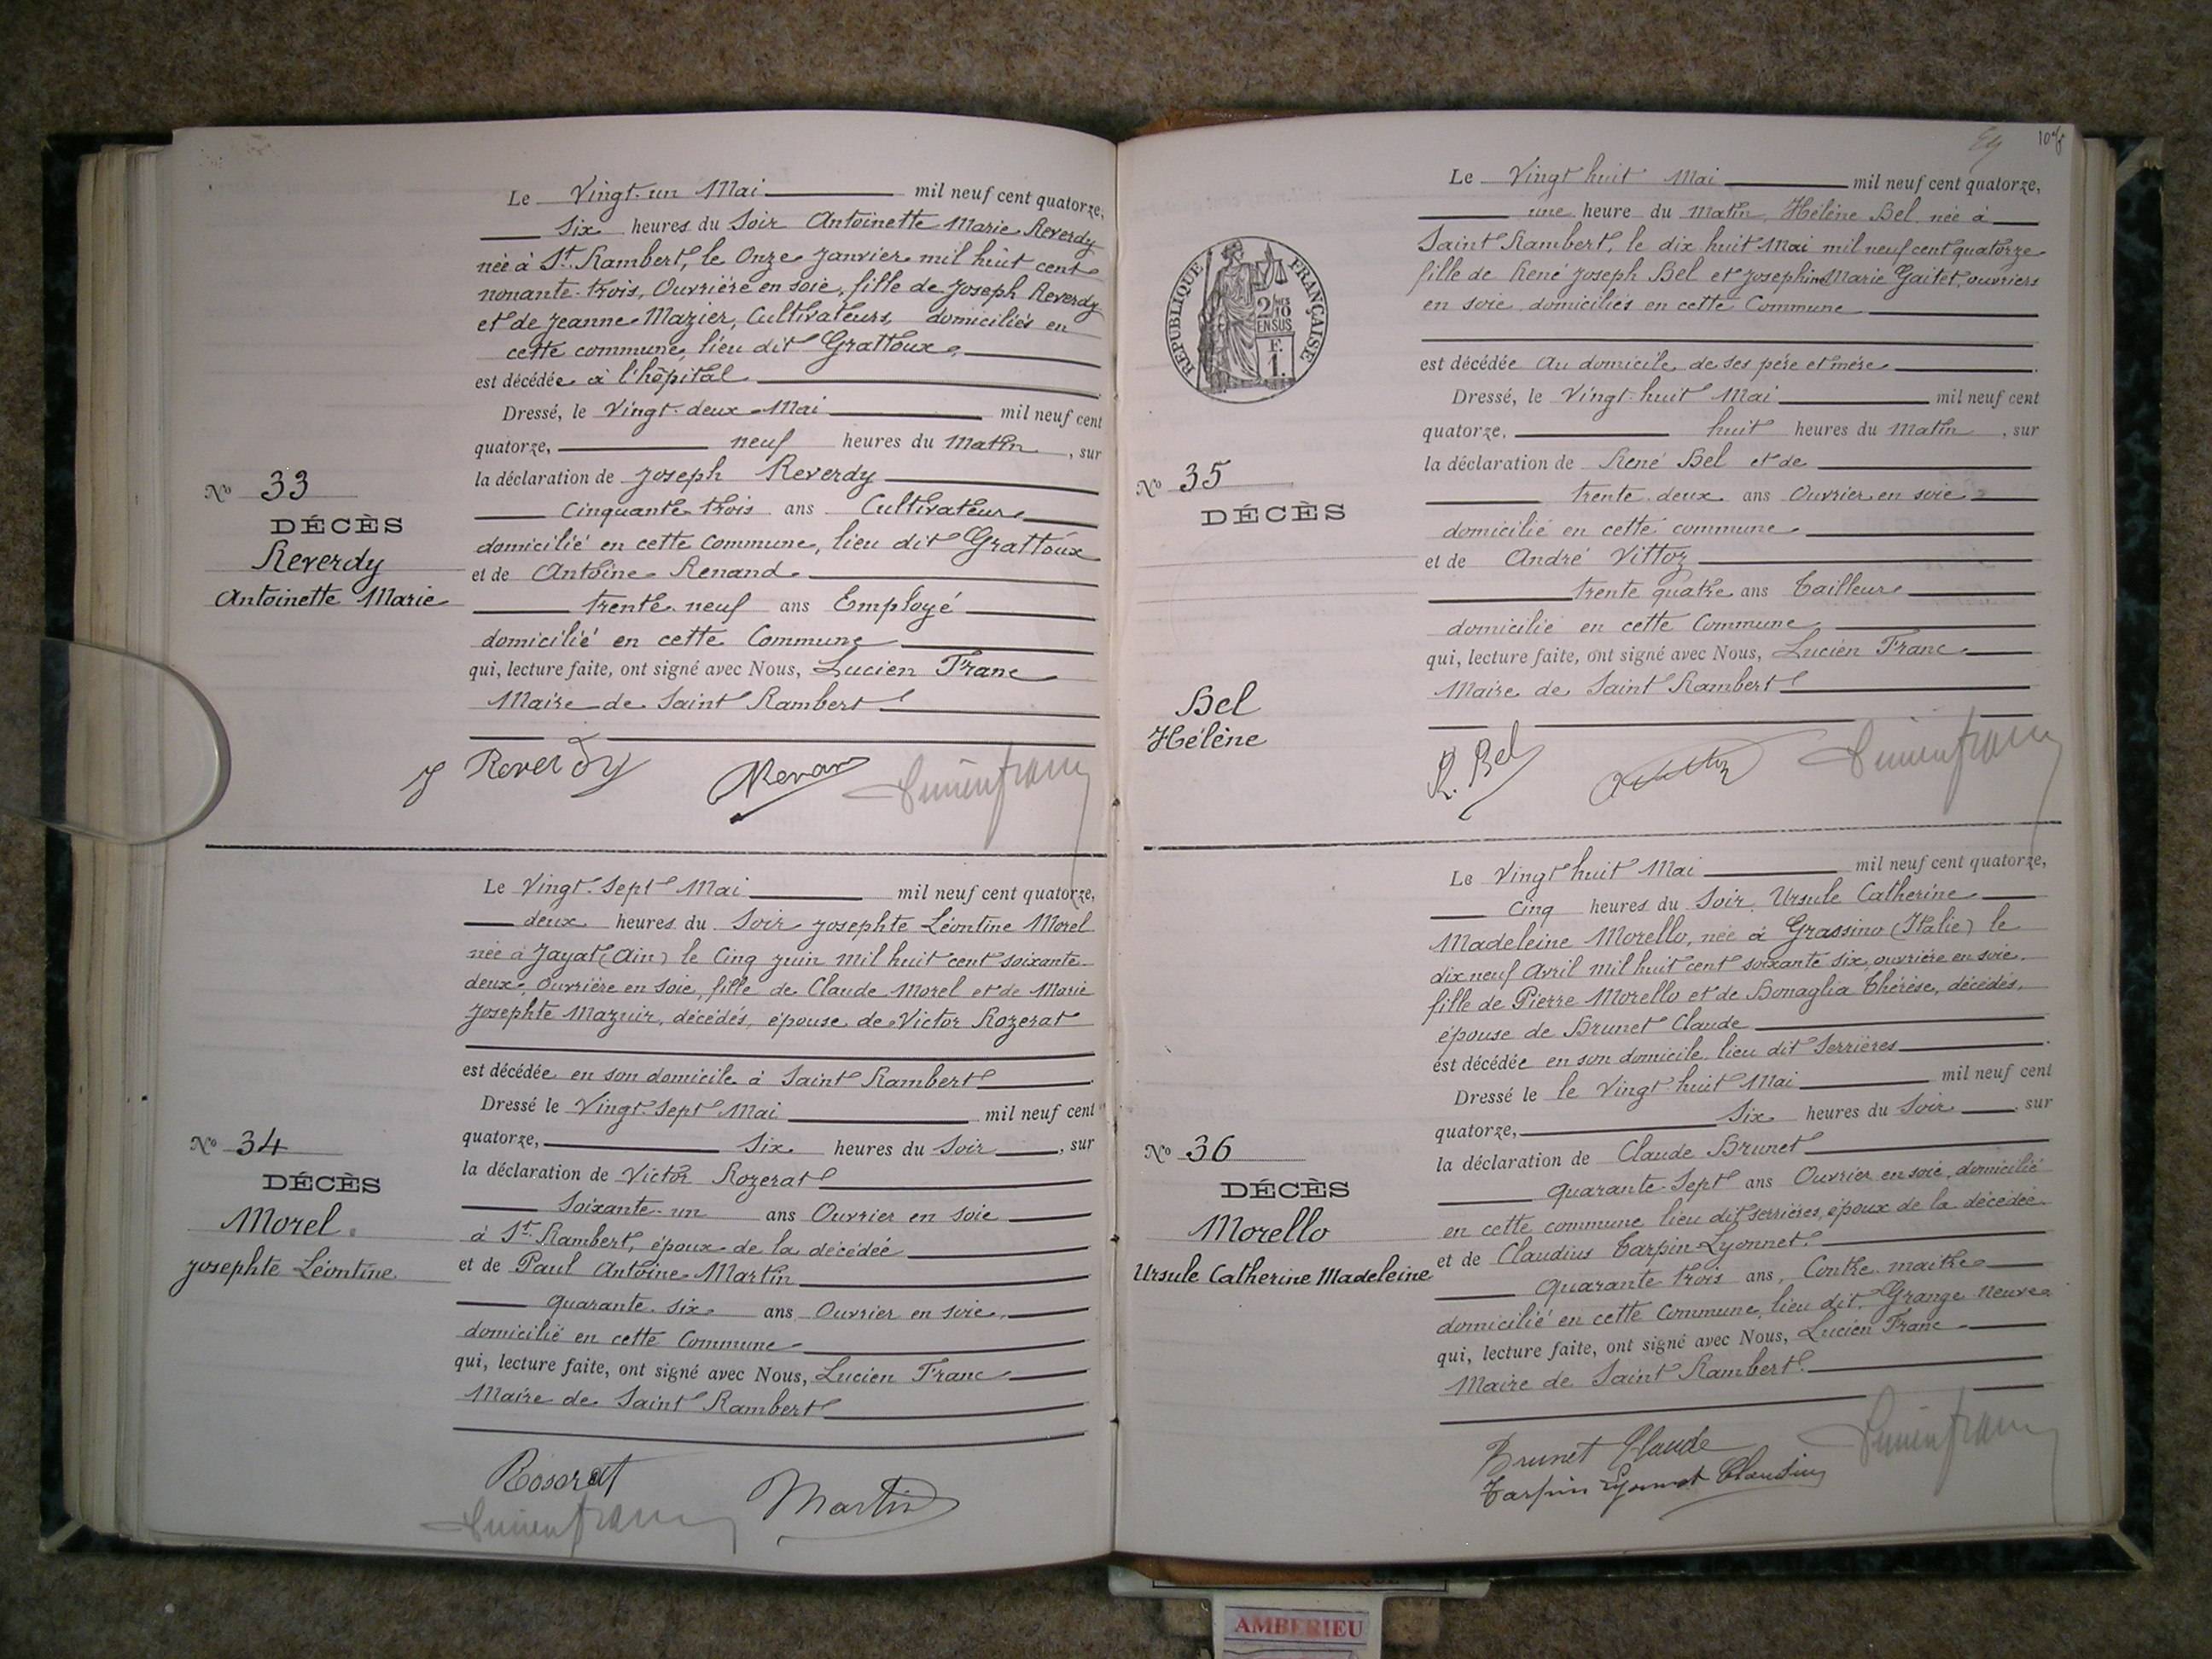 Le Vingt-un Mai mil neuf cent quatorze,
six heures du Soir Antoinette Marie Reverdy
née à St. Rambert, le Onze Janvier mil huit cent
nonante-trois, Ouvrière en soie, fille de Joseph Reverdy
et de Jeanne Mazier, Cultivateurs, domiciliés en
cette commune, lieu dit Grattoux,
est décédée à l'hôpital
Dressé, le Vingt-deux Mai mil neuf cent
quatorze, neuf heures du Matin, sur
la déclaration de Joseph Reverdy
Cinquante trois ans Cultivateur
domicilié en cette Commune, lieu dit Grattoux
et de Antoine Renand
trente-neuf ans Employé
domicilié en cette Commune
qui, lecture faite, ont signé avec Nous, Lucien Franc
Maire de Saint Rambert
No 33
DÉCÈS
Reverdy
Antoinette Marie
J Reverdy
Renan
Lucien franc
Le Vingt-Sept Mai mil neuf cent quatorze,
deux heures du Soir Josephte Léontine Morel
née à Jayat (Ain) le Cinq Juin mil huit cent soixante-
deux, Ouvrière en soie, fille de Claude Morel et de Marie
Josephte Mazuir, décédés, épouse de Victor Rozerat
est décédée en son domicile à Saint Rambert
Dressé le Vingt-Sept Mai mil neuf cent
quatorze, Six heures du Soir, sur
la déclaration de Victor Rozerat
Soixante-un ans Ouvrier en soie
à St. Rambert, époux de la décédée
et de Paul Antoine Martin
quarante-six ans Ouvrier en soie,
domicilié en cette Commune
qui, lecture faite, ont signé avec Nous, Lucien Franc
Maire de Saint Rambert
No 34
DÉCÈS
Morel
Josephte Léontine
Roserat
Martin
Lucien franc
Le Vingt huit Mai mil neuf cent quatorze,
une heure du Matin, Hélène Bel née à
Saint Rambert, le dix huit Mai mil neuf cent quatorze
fille de René Joseph Bel et Josephine Marie Gaitet, ouvriers
en soie domiciliés en cette Commune
est décédée au domicile de ses père et mère
Dressé, le Vingt-huit Mai mil neuf cent
quatorze, huit heures du Matin, sur
la déclaration de René Bel et de
trente-deux ans Ouvrier en soie
domicilié en cette commune
et de André Vittoz
trente quatre ans Tailleur
domicilié en cette Commune
qui, lecture faite, ont signé avec Nous, Lucien Franc
Maire de Saint Rambert
RÉPUBLIQUE FRANÇAISE
2/10
EN SUS
F.
1.
No 35
DÉCÈS
Bel
Hélène
R. Bel
Lucien franc
Le Vingt huit Mai mil neuf cent quatorze,
Cinq heures du Soir, Ursule Catherine
Madeleine Morello, née à Grassino (Italie) le
dix neuf Avril mil huit cent soixante six, ouvrière en soie,
fille de Pierre Morello et de Bonaglia Thérèse, décédés,
épouse de Brunet Claude
est décédée en son domicile, lieu dit Serrières
Dressé le le Vingt huit Mai mil neuf cent
quatorze, Six heures du Soir, sur
la déclaration de Claude Brunet
quarante-Sept ans Ouvrier en soie, domicilié
en cette commune lieu dit Serrières, époux de la décédée
et de Claudius Tarpin-Lyonnet
Quarante trois ans, Contre-maître
domicilié en cette Commune, lieu dit Grange Neuve
qui, lecture faite, ont signé avec Nous, Lucien Franc
Maire de Saint Rambert.
No 36
DÉCÈS
Morello
Ursule Catherine Madeleine
Brunet Claude
Tarpin Lyonnet Claudius
Lucien franc
AMBERIEU